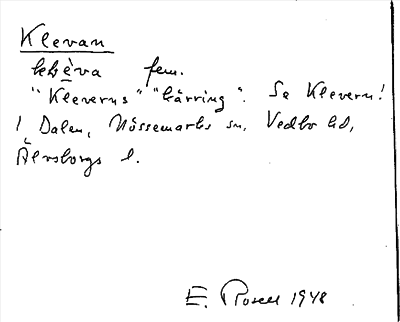 Klevan
klèva fem.
"Kleverns" "kärring". Se Klevern!
I Dalen, Nössemarks sn, Vedbo hd,
Älvsborgs l.
E. Rosell 1948